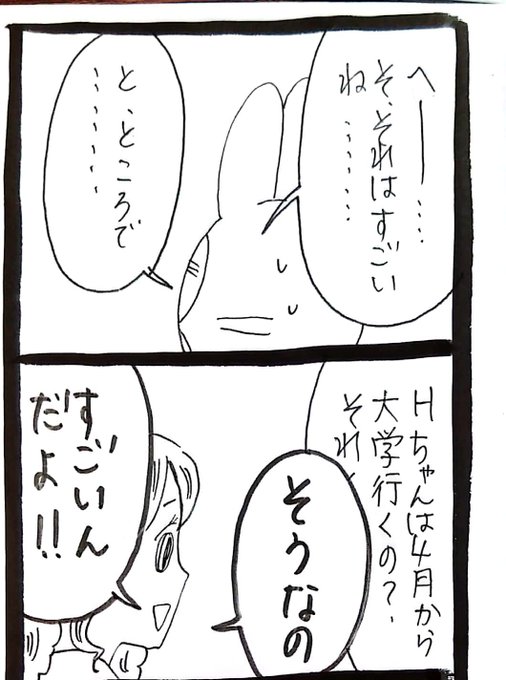 へー……
そ、それはすごい
ね………
と、ところで
………
Hちゃんは4月から
大学行くの?
それ
そうなの
すごいん
だよ!!